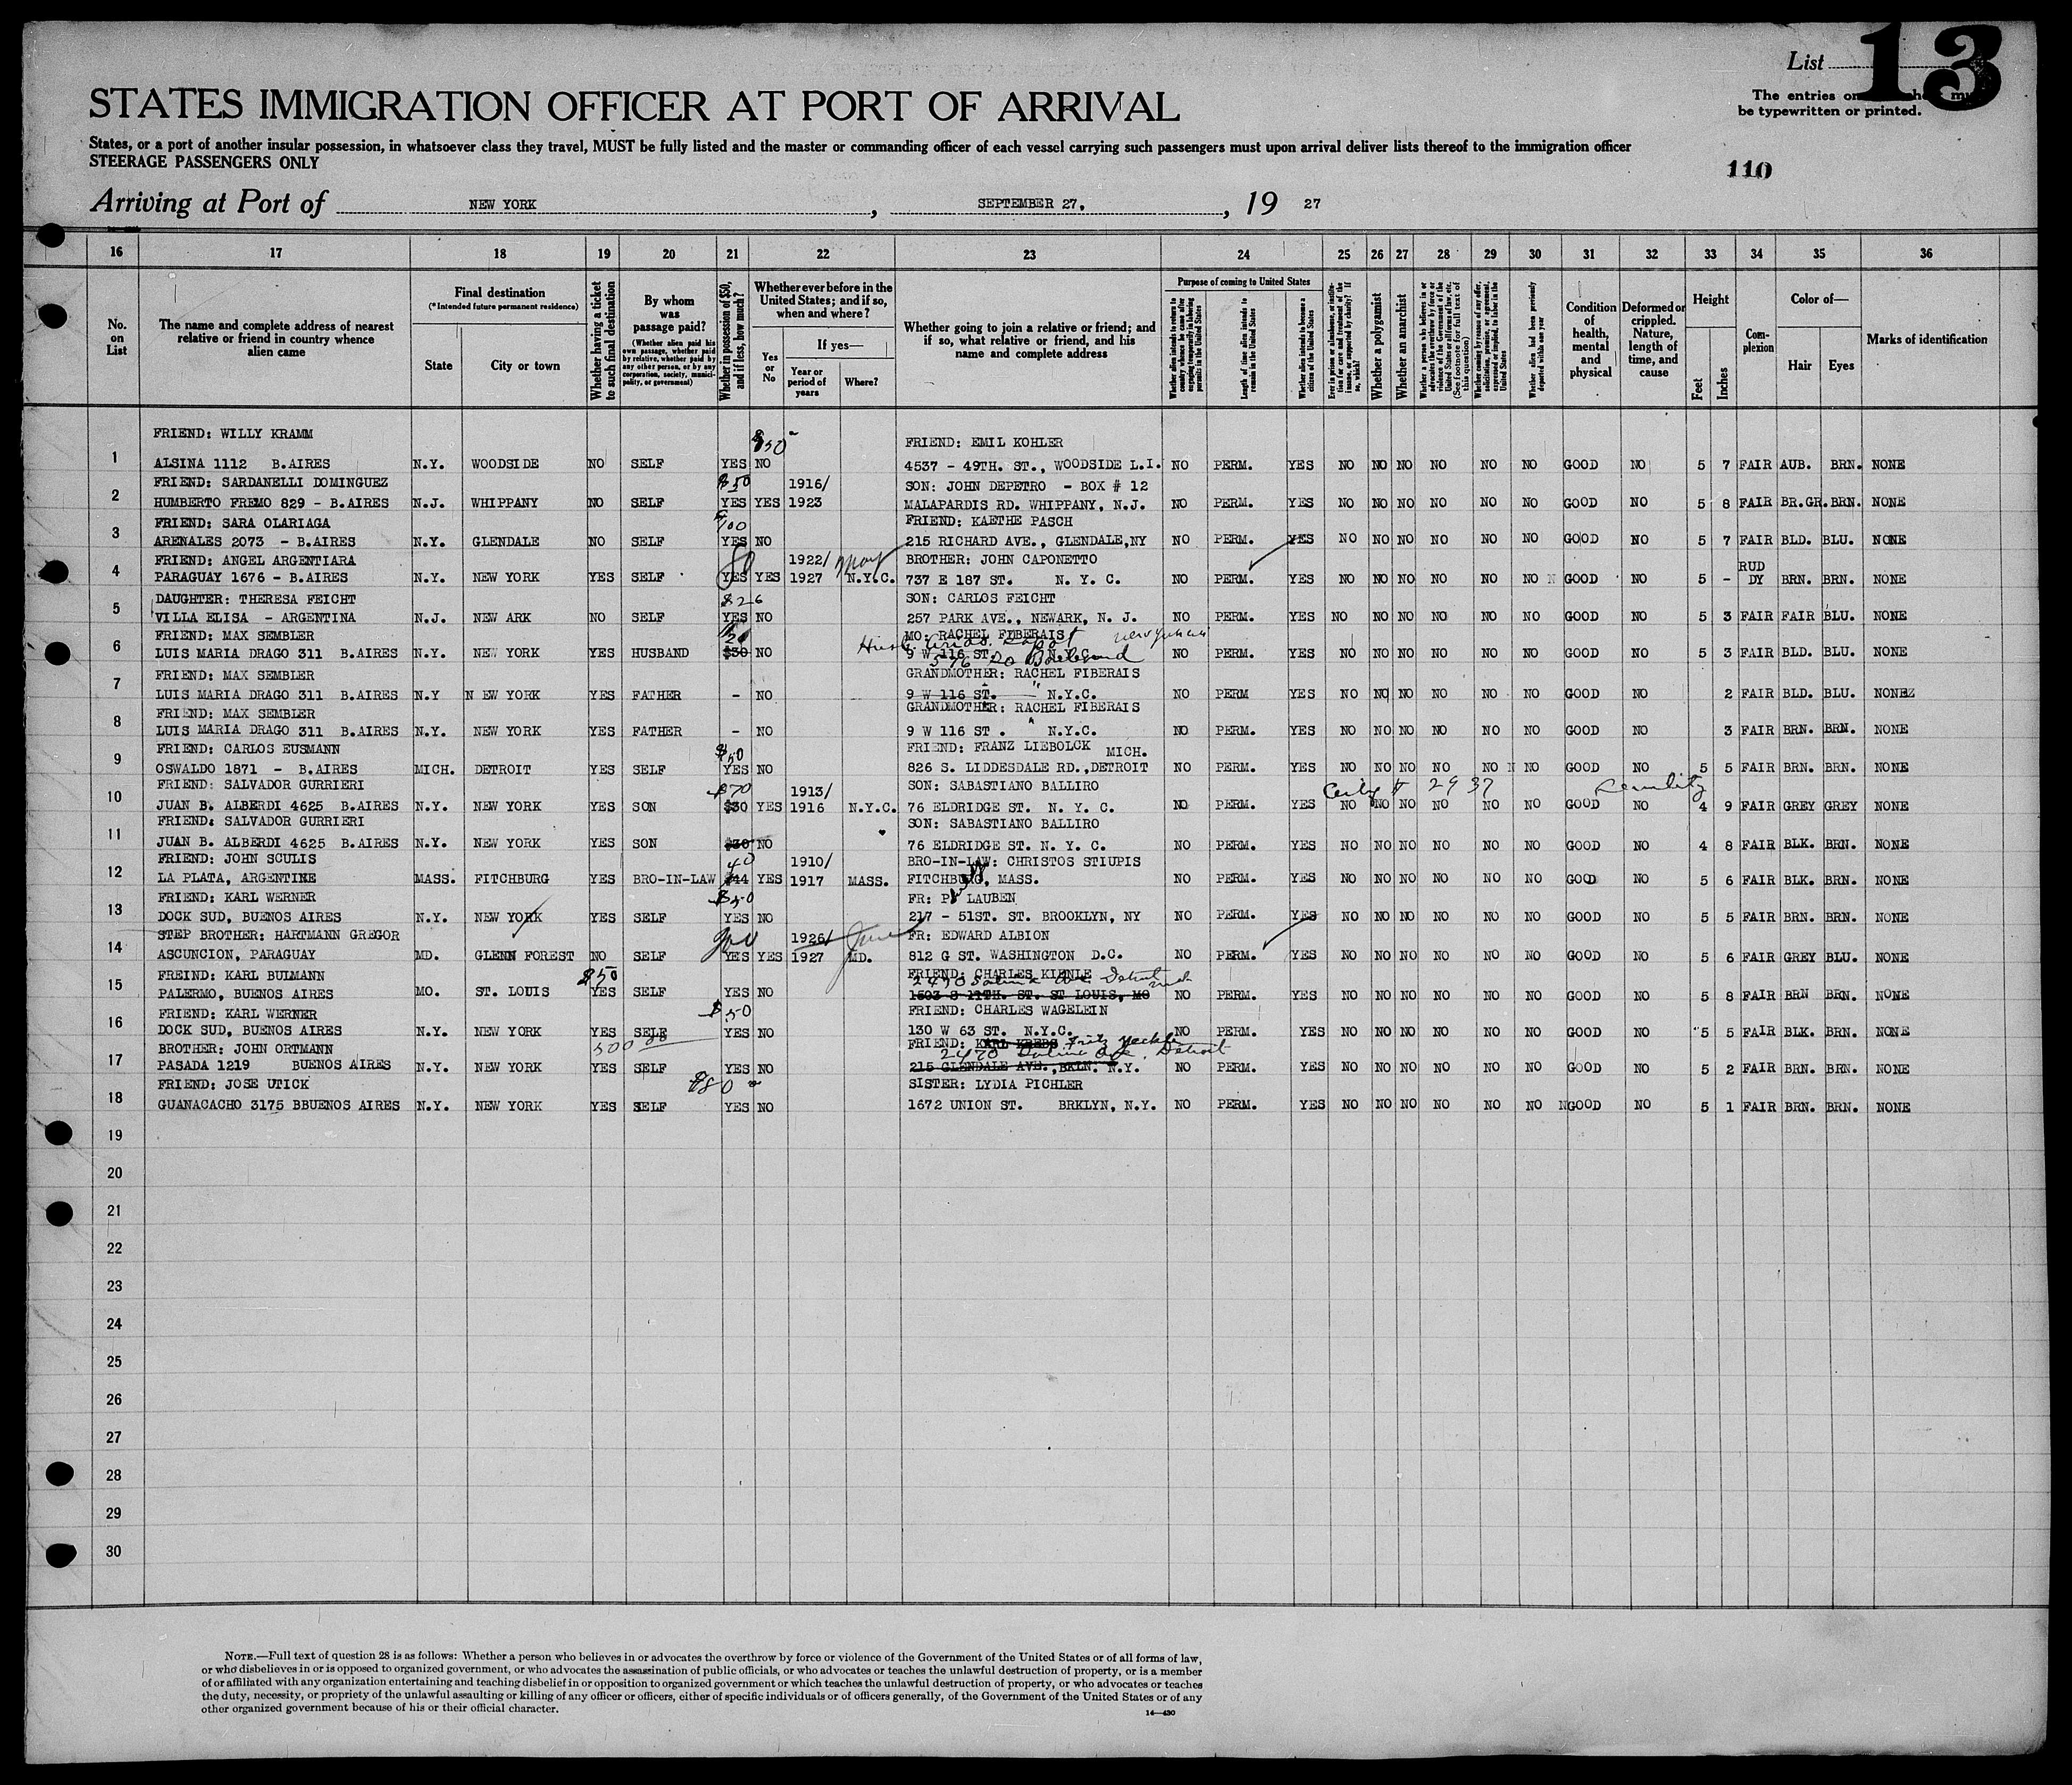 List 13
The entries on
be typewritten or printed.
STATES IMMIGRATION OFFICER AT PORT OF ARRIVAL
States, or a port of another insular possession, in whatsoever class they travel, MUST be fully listed and the master or commanding officer of each vessel carrying such passengers must upon arrival deliver lists thereof to the immigration officer
STEERAGE PASSENGERS ONLY
110
Arriving at Port of NEW YORK, SEPTEMBER 27, 19 27
16 17 18 19 20 21 22 23 24 25 26 27 28 29 30 31 32 33 34 35 36
No. on List
The name and complete address of nearest relative or friend in country whence alien came
Final destination
(* Intended future permanent residence)
State
City or town
Whether having a ticket to such final destination
By whom was passage paid?
(Whether alien paid his own passage, whether paid by relative, whether paid by any other person, or by any corporation, society, municipality, or government)
Whether in possession of $50, and if less, how much?
Whether ever before in the United States; and if so, when and where?
Yes or No
If yes—
Year or period of years
Where?
Whether going to join a relative or friend; and if so, what relative or friend, and his name and complete address
Purpose of coming to United States
Whether alien intends to return to country whence he came after engaging temporarily in laboring pursuits in the United States
Length of time alien intends to remain in the United States
Whether alien intends to become a citizen of the United States
Ever in prison or almshouse, or institution for care and treatment of the insane, or supported by charity? If so, which?
Whether a polygamist
Whether an anarchist
Whether a person who believes in or advocates the overthrow by force or violence of the Government of the United States or all forms of law, etc. (See footnote for full text of this question)
Whether coming by reason of any offer, solicitation, promise, or agreement, expressed or implied, to labor in the United States
Whether alien had been previously deported within one year
Condition of health, mental and physical
Deformed or crippled. Nature, length of time, and cause
Height
Feet
Inches
Complexion
Color of—
Hair
Eyes
Marks of identification
FRIEND: WILLY KRAMM $50 FRIEND: EMIL KOHLER
1 ALSINA 1112 B.AIRES N.Y. WOODSIDE NO SELF YES NO 4537 - 49TH. ST., WOODSIDE L.I. NO PERM. YES NO NO NO NO NO NO GOOD NO 5 7 FAIR AUB. BRN. NONE
FRIEND: SARDANELLI DOMINGUEZ $50 1916/ SON: JOHN DEPETRO - BOX # 12
2 HUMBERTO FREMO 829 - B.AIRES N.J. WHIPPANY NO SELF YES YES 1923 MALAPARDIS RD. WHIPPANY, N.J. NO PERM. YES NO NO NO NO NO NO GOOD NO 5 8 FAIR BR.GR. BRN. NONE
FRIEND: SARA OLARIAGA 100 FRIEND: KAETHE PASCH
3 ARENALES 2073 - B.AIRES N.Y. GLENDALE NO SELF YES NO 215 RICHARD AVE., GLENDALE,NY NO PERM. YES NO NO NO NO NO NO GOOD NO 5 7 FAIR BLD. BLU. NONE
FRIEND: ANGEL ARGENTIARA 80 1922/ May BROTHER: JOHN CAPONETTO RUD
4 PARAGUAY 1676 - B.AIRES N.Y. NEW YORK YES SELF YES YES 1927 N.Y.C. 737 E 187 ST. N. Y. C. NO PERM. YES NO NO NO NO NO NO N GOOD NO 5 - DY BRN. BRN. NONE
DAUGHTER: THERESA FEICHT $26 SON: CARLOS FEICHT
5 VILLA ELISA - ARGENTINA N.J. NEW ARK NO SELF YES NO 257 PARK AVE., NEWARK, N. J. NO PERM. YES NO NO NO NO NO NO GOOD NO 5 3 FAIR FAIR BLU. NONE
FRIEND: MAX SEMBLER 20 MO: RACHEL FIBERAIS
6 LUIS MARIA DRAGO 311 B.AIRES N.Y. NEW YORK YES HUSBAND $30 NO 9 W 116 ST. N.Y.C. NO PERM. YES NO NO NO NO NO NO GOOD NO 5 3 FAIR BLD. BLU. NONE
576 So Boulevard
FRIEND: MAX SEMBLER GRANDMOTHER: RACHEL FIBERAIS
7 LUIS MARIA DRAGO 311 B.AIRES N.Y N EW YORK YES FATHER - NO 9 W 116 ST. " N.Y.C. NO PERM YES NO NO NO NO NO NO GOOD NO 2 FAIR BLD. BLU. NONE
FRIEND: MAX SEMBLER GRANDMOTHER: RACHEL FIBERAIS
8 LUIS MARIA DRAGO 311 B.AIRES N.Y. NEW YORK YES FATHER - NO 9 W 116 ST . N.Y.C. NO PERM. YES NO NO NO NO NO NO GOOD NO 3 FAIR BRN. BRN. NONE
FRIEND: CARLOS EUSMANN $50 FRIEND: FRANZ LIEBOLCK MICH.
9 OSWALDO 1871 - B.AIRES MICH. DETROIT YES SELF YES NO 826 S. LIDDESDALE RD.,DETROIT NO PERM. YES NO NO NO NO NO NO GOOD NO 5 5 FAIR BRN. BRN. NONE
FRIEND: SALVADOR GURRIERI $70 1913/ SON: SABASTIANO BALLIRO 2937 Senility
10 JUAN B. ALBERDI 4625 B.AIRES N.Y. NEW YORK YES SON $30 YES 1916 N.Y.C. 76 ELDRIDGE ST. N. Y. C. NO PERM. YES NO NO NO NO NO NO GOOD NO 4 9 FAIR GREY GREY NONE
FRIEND: SALVADOR GURRIERI SON: SABASTIANO BALLIRO
11 JUAN B. ALBERDI 4625 B.AIRES N.Y. NEW YORK YES SON $30 NO 76 ELDRIDGE ST. N. Y. C. NO PERM. YES NO NO NO NO NO NO GOOD NO 4 8 FAIR BLK. BRN. NONE
FRIEND: JOHN SCULIS 40 1910/ BRO-IN-LAW: CHRISTOS STIUPIS
12 LA PLATA, ARGENTINE MASS. FITCHBURG YES BRO-IN-LAW $44 YES 1917 MASS. FITCHBURG, MASS. NO PERM. YES NO NO NO NO NO NO GOOD NO 5 6 FAIR BLK. BRN. NONE
FRIEND: KARL WERNER $50 FR: LAUBEN
13 DOCK SUD, BUENOS AIRES N.Y. NEW YORK YES SELF YES NO 217 - 51ST. ST. BROOKLYN, NY NO PERM. YES NO NO NO NO NO NO GOOD NO 5 5 FAIR BRN. BRN. NONE
STEP BROTHER: HARTMANN GREGOR 1926/ June FR: EDWARD ALBION
14 ASCUNCION, PARAGUAY MD. GLENN FOREST NO SELF YES YES 1927 MD. 812 G ST. WASHINGTON D.C. NO PERM. YES NO NO NO NO NO NO GOOD NO 5 6 FAIR GREY BLU. NONE
FREIND: KARL BULMANN $50 FRIEND: CHARLES KIENLE
2470 Salina Ave Detroit Mich
15 PALERMO, BUENOS AIRES MO. ST. LOUIS YES SELF YES NO 1503 S 11TH. ST. ST LOUIS, MO NO PERM. YES NO NO NO NO NO NO GOOD NO 5 8 FAIR BRN BRN. NONE
FRIEND: KARL WERNER $50 FRIEND: CHARLES WAGELEIN
16 DOCK SUD, BUENOS AIRES N.Y. NEW YORK YES SELF YES NO 130 W 63 ST. N.Y.C. NO PERM. YES NO NO NO NO NO NO GOOD NO 5 5 FAIR BLK. BRN. NONE
BROTHER: JOHN ORTMANN 500 FRIEND: KARL KREBS Fritz
2470 Salina Ave. Detroit
17 PASADA 1219 BUENOS AIRES N.Y. NEW YORK YES SELF YES NO 215 GLENDALE AVE.,BKLN. N.Y. NO PERM. YES NO NO NO NO NO NO GOOD NO 5 2 FAIR BRN. BRN. NONE
FRIEND: JOSE UTICK $80 SISTER: LYDIA PICHLER
18 GUANACACHO 3175 BBUENOS AIRES N.Y. NEW YORK YES SELF YES NO 1672 UNION ST. BRKLYN, N.Y. NO PERM. YES NO NO NO NO NO NO NGOOD NO 5 1 FAIR BRN. BRN. NONE
19
20
21
22
23
24
25
26
27
28
29
30
NOTE.—Full text of question 28 is as follows: Whether a person who believes in or advocates the overthrow by force or violence of the Government of the United States or of all forms of law,
or who disbelieves in or is opposed to organized government, or who advocates the assassination of public officials, or who advocates or teaches the unlawful destruction of property, or is a member
of or affiliated with any organization entertaining and teaching disbelief in or opposition to organized government or which teaches the unlawful destruction of property, or who advocates or teaches
the duty, necessity, or propriety of the unlawful assaulting or killing of any officer or officers, either of specific individuals or of officers generally, of the Government of the United States or of any
other organized government because of his or their official character.
14—430